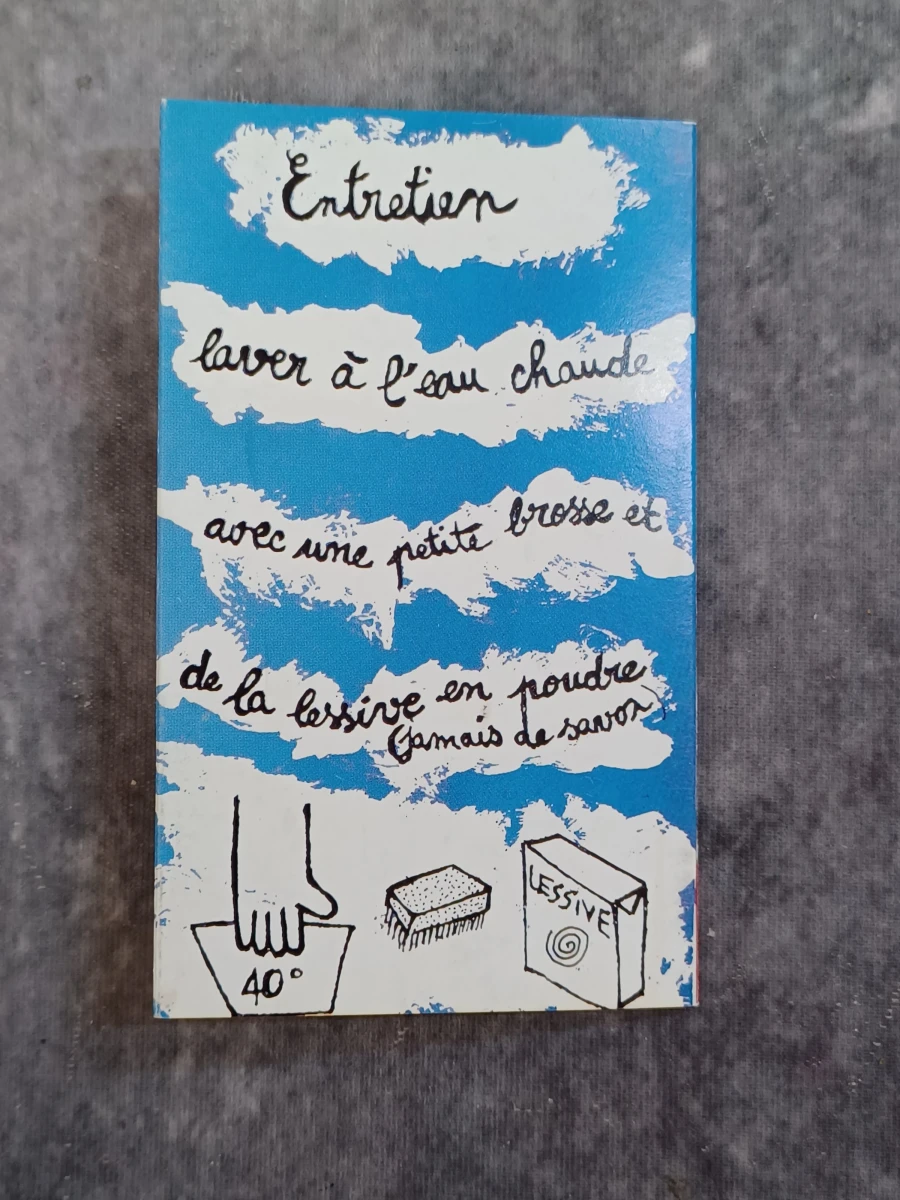 Entretien
laver à l'eau chaude
avec une petite brosse et
de la lessive en poudre
(jamais de savon)
LESSIVE
40°